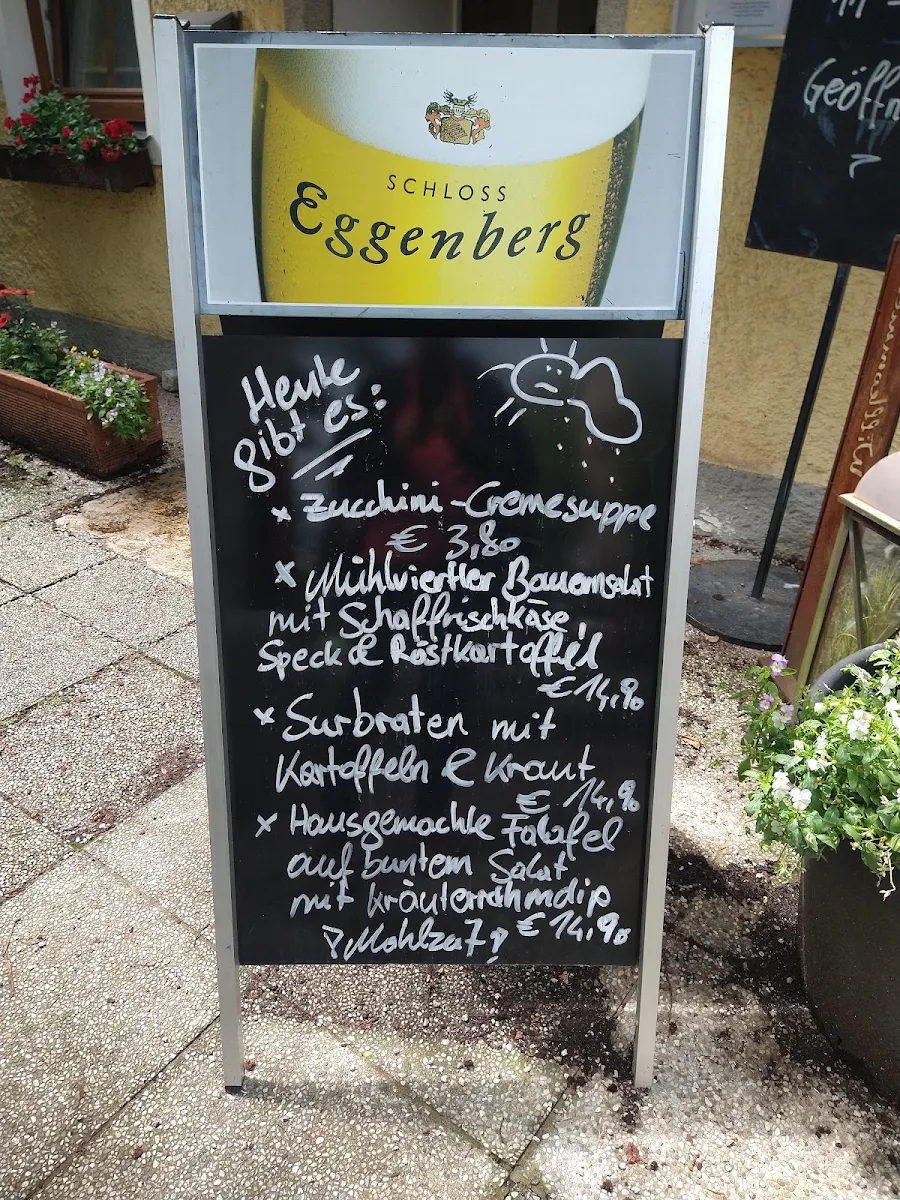 SCHLOSS
Eggenberg
Geöffn
Heute
gibt es:
x Zucchini-Cremesuppe
€ 3,80
x Mühlviertler Bauernsalat
mit Schaffrischkäse,
Speck & Röstkartoffel
€ 14,90
x Surbraten mit
Kartoffeln & Kraut
€ 14,90
x Hausgemachte Falafel
auf buntem Salat
mit Kräuterrahmdip
€ 14,90
Mahlzeit